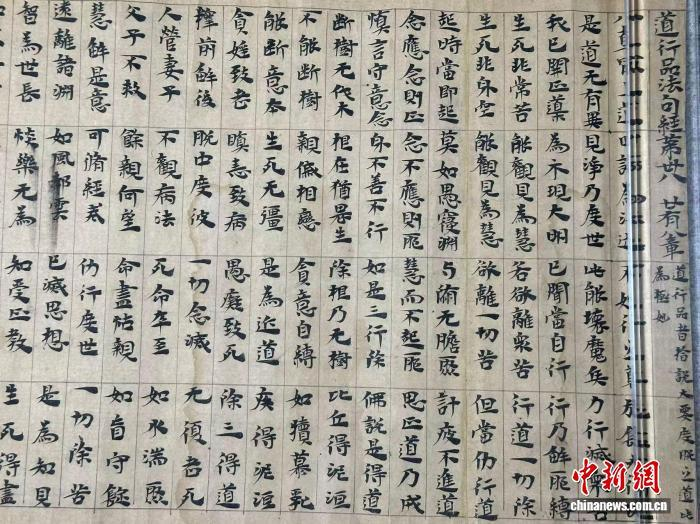 道行品法句經第卅八 廿有八章 道行品者旨說大要度脫之道此為極妙
是道无有異 見淨乃度世 此能壞魔兵 力行滅
我已開正道 為示現大明 已聞當自行 行乃解邪縛
生死非常苦 能觀見為慧 若欲離眾苦 行道一切除
生死非身空 能觀見為慧 欲離一切苦 但當仂行道
起時當即起 莫如愚覆淵 与術无瞻聚 計疲不進道
念應念則正 念不應則邪 慧而不起邪 思正道乃成
慎言守意念 身不善不行 如是三行除 佛說是得道
断樹无伐本 根在猶復生 除根乃无樹 比丘得泥洹
不能断樹 親戚相戀 貪意自縛 如犢慕乳
能断意本 生死无彊 是為近道 疾得泥洹
貪婬致老 瞋恚致病 愚癡致死 除三得道
釋前解後 脫中度彼 一切念滅 无復老死
人營妻子 不觀病法 死命卒至 如水湍聚
父子不救 餘親何望 命盡怙親 如盲守燈
慧解是意 可脩經戒 仂行度世 一切除苦
遠離諸淵 如風却雲 已滅思想 是為知見
智為世長 惔樂无為 知受正教 生死得盡
中新网
www.chinanews.com